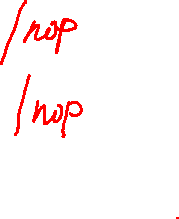 /nop
/nop